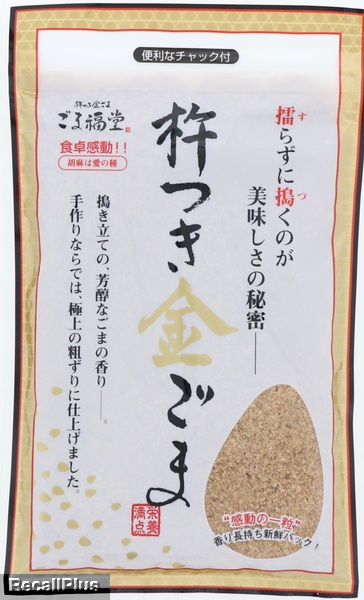 便利なチャック付
杵つき金ごま
ごま福堂
食卓感動!!
胡麻は愛の種
擂らずに搗くのが
す
つ
美味しさの秘密——
杵つき金ごま
搗き立ての、芳醇なごまの香り——。
手作りならでは、極上の粗ずりに仕上げました。
栄養
満点
"感動の一粒"
香り長持ち新鮮パック!
RecallPlus